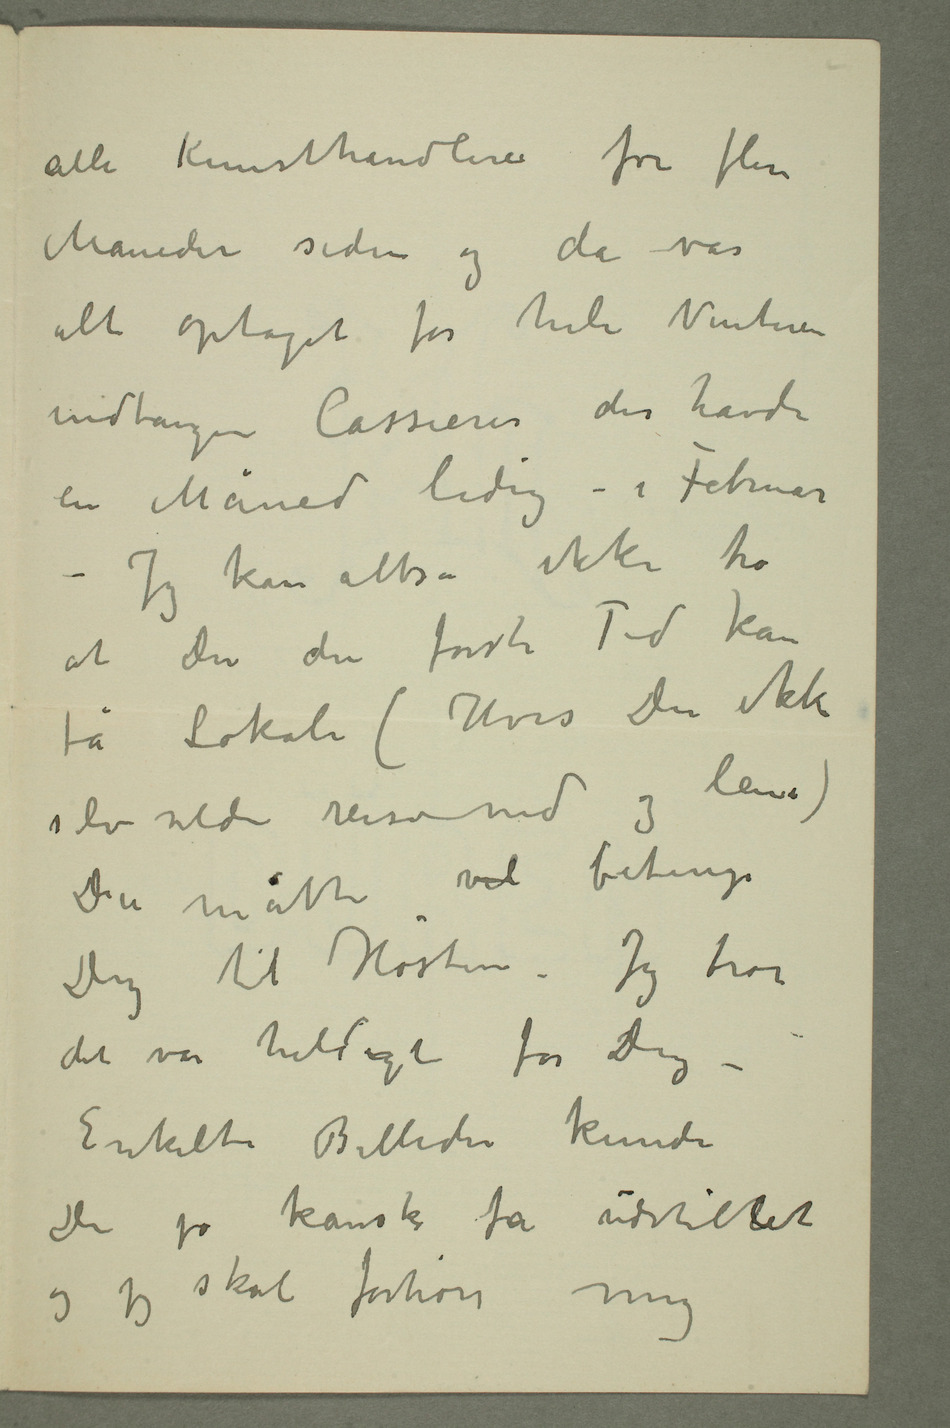 alle Kunsthandlere for flere
Måneder siden og da var
alt optaget for hele Vinteren
undtagen Cassierer der havde
en Måned ledig – i Februar
– Jeg kan altså ikke tro
at Du den første Tid kan
få Lokale ( Hvis Du ikke
selv vilde reise ned og leie)
Du måtte vel betinge
Dig til Høsten – Jeg tror
det var heldigt for Dig –
Enkelte Billeder kunde
Du jo kanske få udstillet
og jeg skal forhøre mig